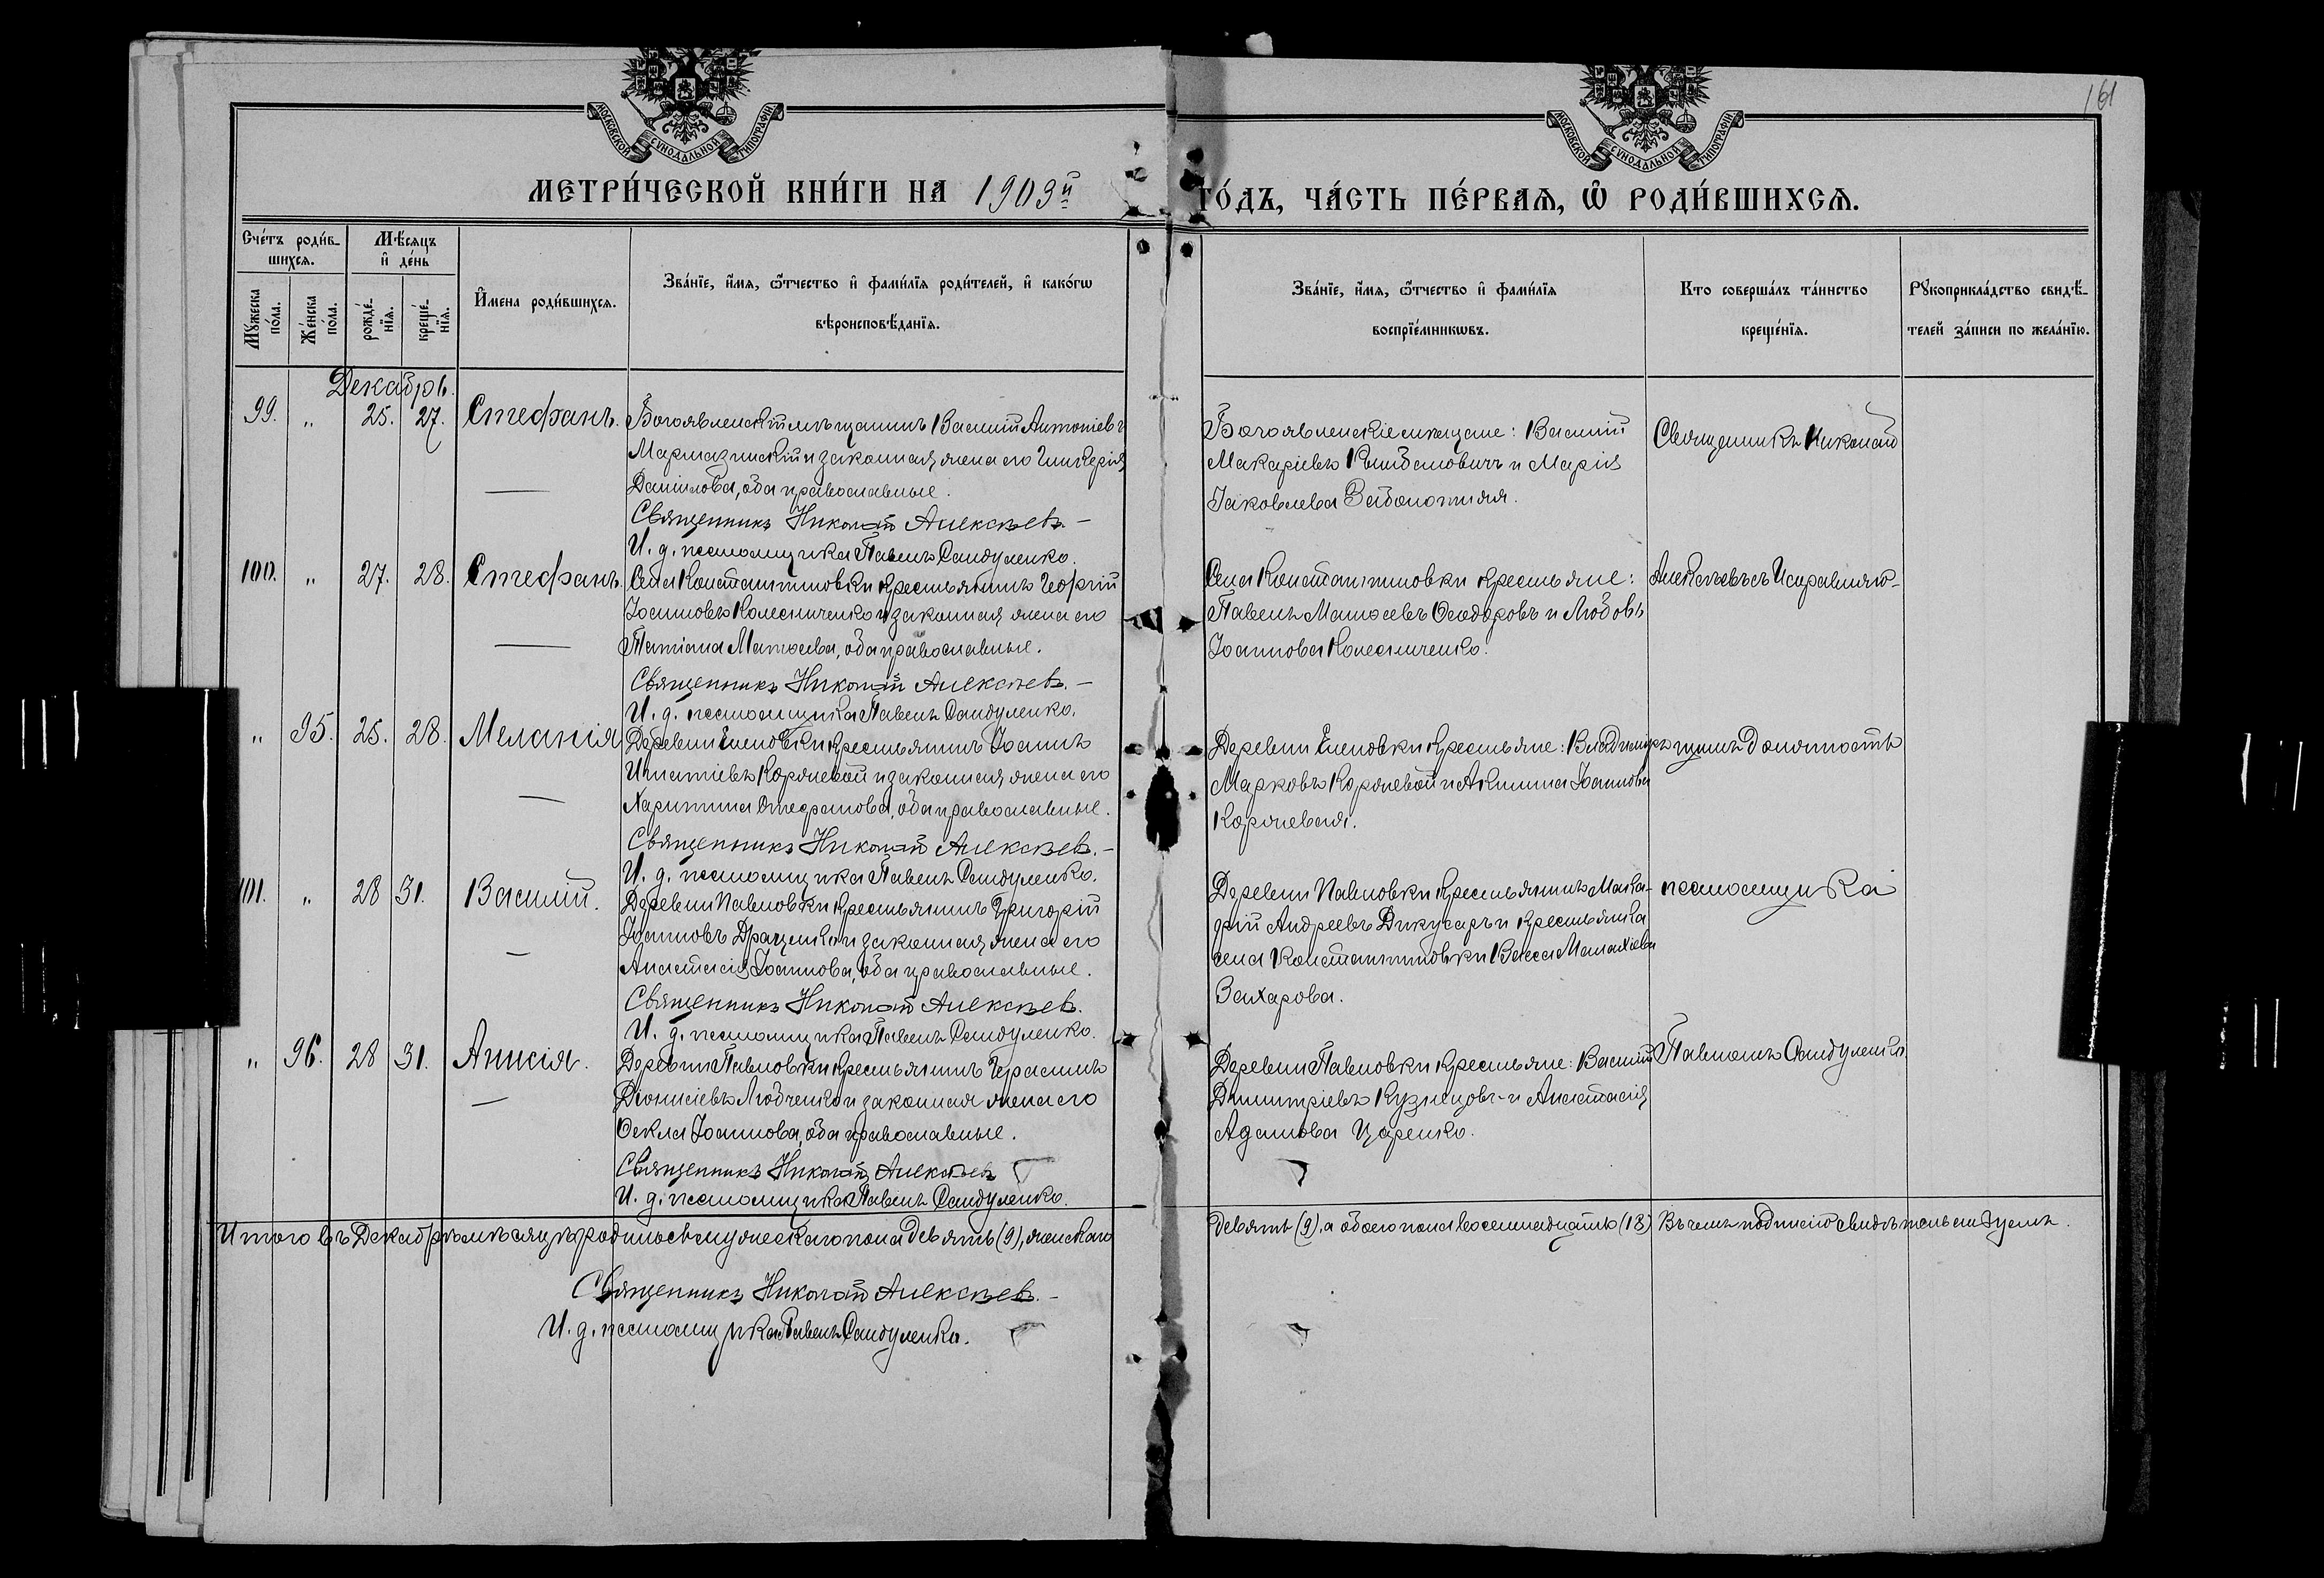 161
МОСКОВСКОЙ СѴНОДАЛЬНОЙ ТИПОГРАФІИ
МОСКОВСКОЙ СѴНОДАЛЬНОЙ ТИПОГРАФІИ
МЕТРИ́ЧЕСКОЙ КНИ́ГИ НА 1903й
ГО́ДЪ, ЧА́СТЬ ПЕ́РВАѦ, Ѡ РОДИ́ВШИХСѦ.
Сче́тъ роди́в-
шихсѧ.
Мꙋ́жеска по́ла.
Же́нска по́ла.
Мѣ́сѧцъ и҆ де́нь
рожде́-нїѧ.
креще́-нїѧ.
И҆мена роди́вшихсѧ.
Зва́нїе, и҆́мѧ, ѻ҆́тчество и҆ фами́лїѧ роди́телей, и҆ како́гѡ
вѣроисповѣ́данїѧ.
Зва́нїе, и҆́мѧ, ѻ҆́тчество и҆ фами́лїѧ
воспрїе́мникѡвъ.
Кто соверша́лъ та́инство
креще́нїѧ.
Рꙋкоприкла́дство свидѣ́-
телей за́писи по жела́нїю.
Декабрь.
99. " 25. 27. Стефанъ.
Богоявленскій мѣщанинъ Василій Антоніевъ
Мармазинскій и законная жена его Гликерія
Даніилова, оба православные.
Священникъ Николай Алексѣевъ. –
И. д. псаломщика Павелъ Сандуленко.
Богоявленскіе мѣщане: Василій
Макаріевъ и Марія
Іаковлева Заболотняя.
Священникъ Николай
100. " 27. 28. Стефанъ.
Села Константиновки крестьянинъ Георгій
Іоанновъ Колесниченко и законная жена его
Татіана Матѳеева, оба православные.
Священникъ Николай Алексѣевъ. –
И. д. псаломщика Павелъ Сандуленко.
Села Константиновки крестьяне:
Павелъ Матѳеевъ Ѳеодоровъ и Любовь
Іоаннова Колесниченко.
Алексѣевъ съ Исправляю-
" 95. 25. 28. Меланія
Деревни Еленовки крестьянинъ Іоаннъ
Игнатіевъ Коржевой и законная жена его
Харитина Стефанова, оба православные.
Священникъ Николай Алексѣевъ. –
И. д. псаломщика Павелъ Сандуленко.
Деревни Еленовки крестьяне: Владиміръ
Марковъ Коржевой и Акилина Іоаннова
Коржевая.
щимъ должность
101. " 28 31. Василій.
Деревни Павловки крестьянинъ Григорій
Іоанновъ и законная жена его
Анастасія Іоаннова, оба православные.
Священникъ Николай Алексѣевъ.
И. д. псаломщика Павелъ Сандуленко.
Деревни Павловки крестьянинъ Мака-
рій Андреевъ Дикусаръ и крестьянка
села Константиновки Васса Малахіева
Захарова.
псаломщика
" 96. 28 31. Анисія.
Деревни Павловки крестьянинъ Герасимъ
Діонисіевъ Любченко и законная жена его
Ѳекла Іоаннова, оба православные.
Священникъ Николай Алексѣевъ
И. д. псаломщика Павелъ Сандуленко.
Деревни Павловки крестьяне: Василій
Димитріевъ Кузнецовъ и Анастасія
Адамова Царенко.
Павломъ Сандуленко.
Итого въ Декабрѣ мѣсяцѣ родилось мужескаго пола девять (9), женскаго
девять (9), а обоего пола восемнадцать (18) Въ чемъ подписью свидѣтельствуемъ.
Священникъ Николай Алексѣевъ. –
И. д. псаломщика Павелъ Сандуленко.